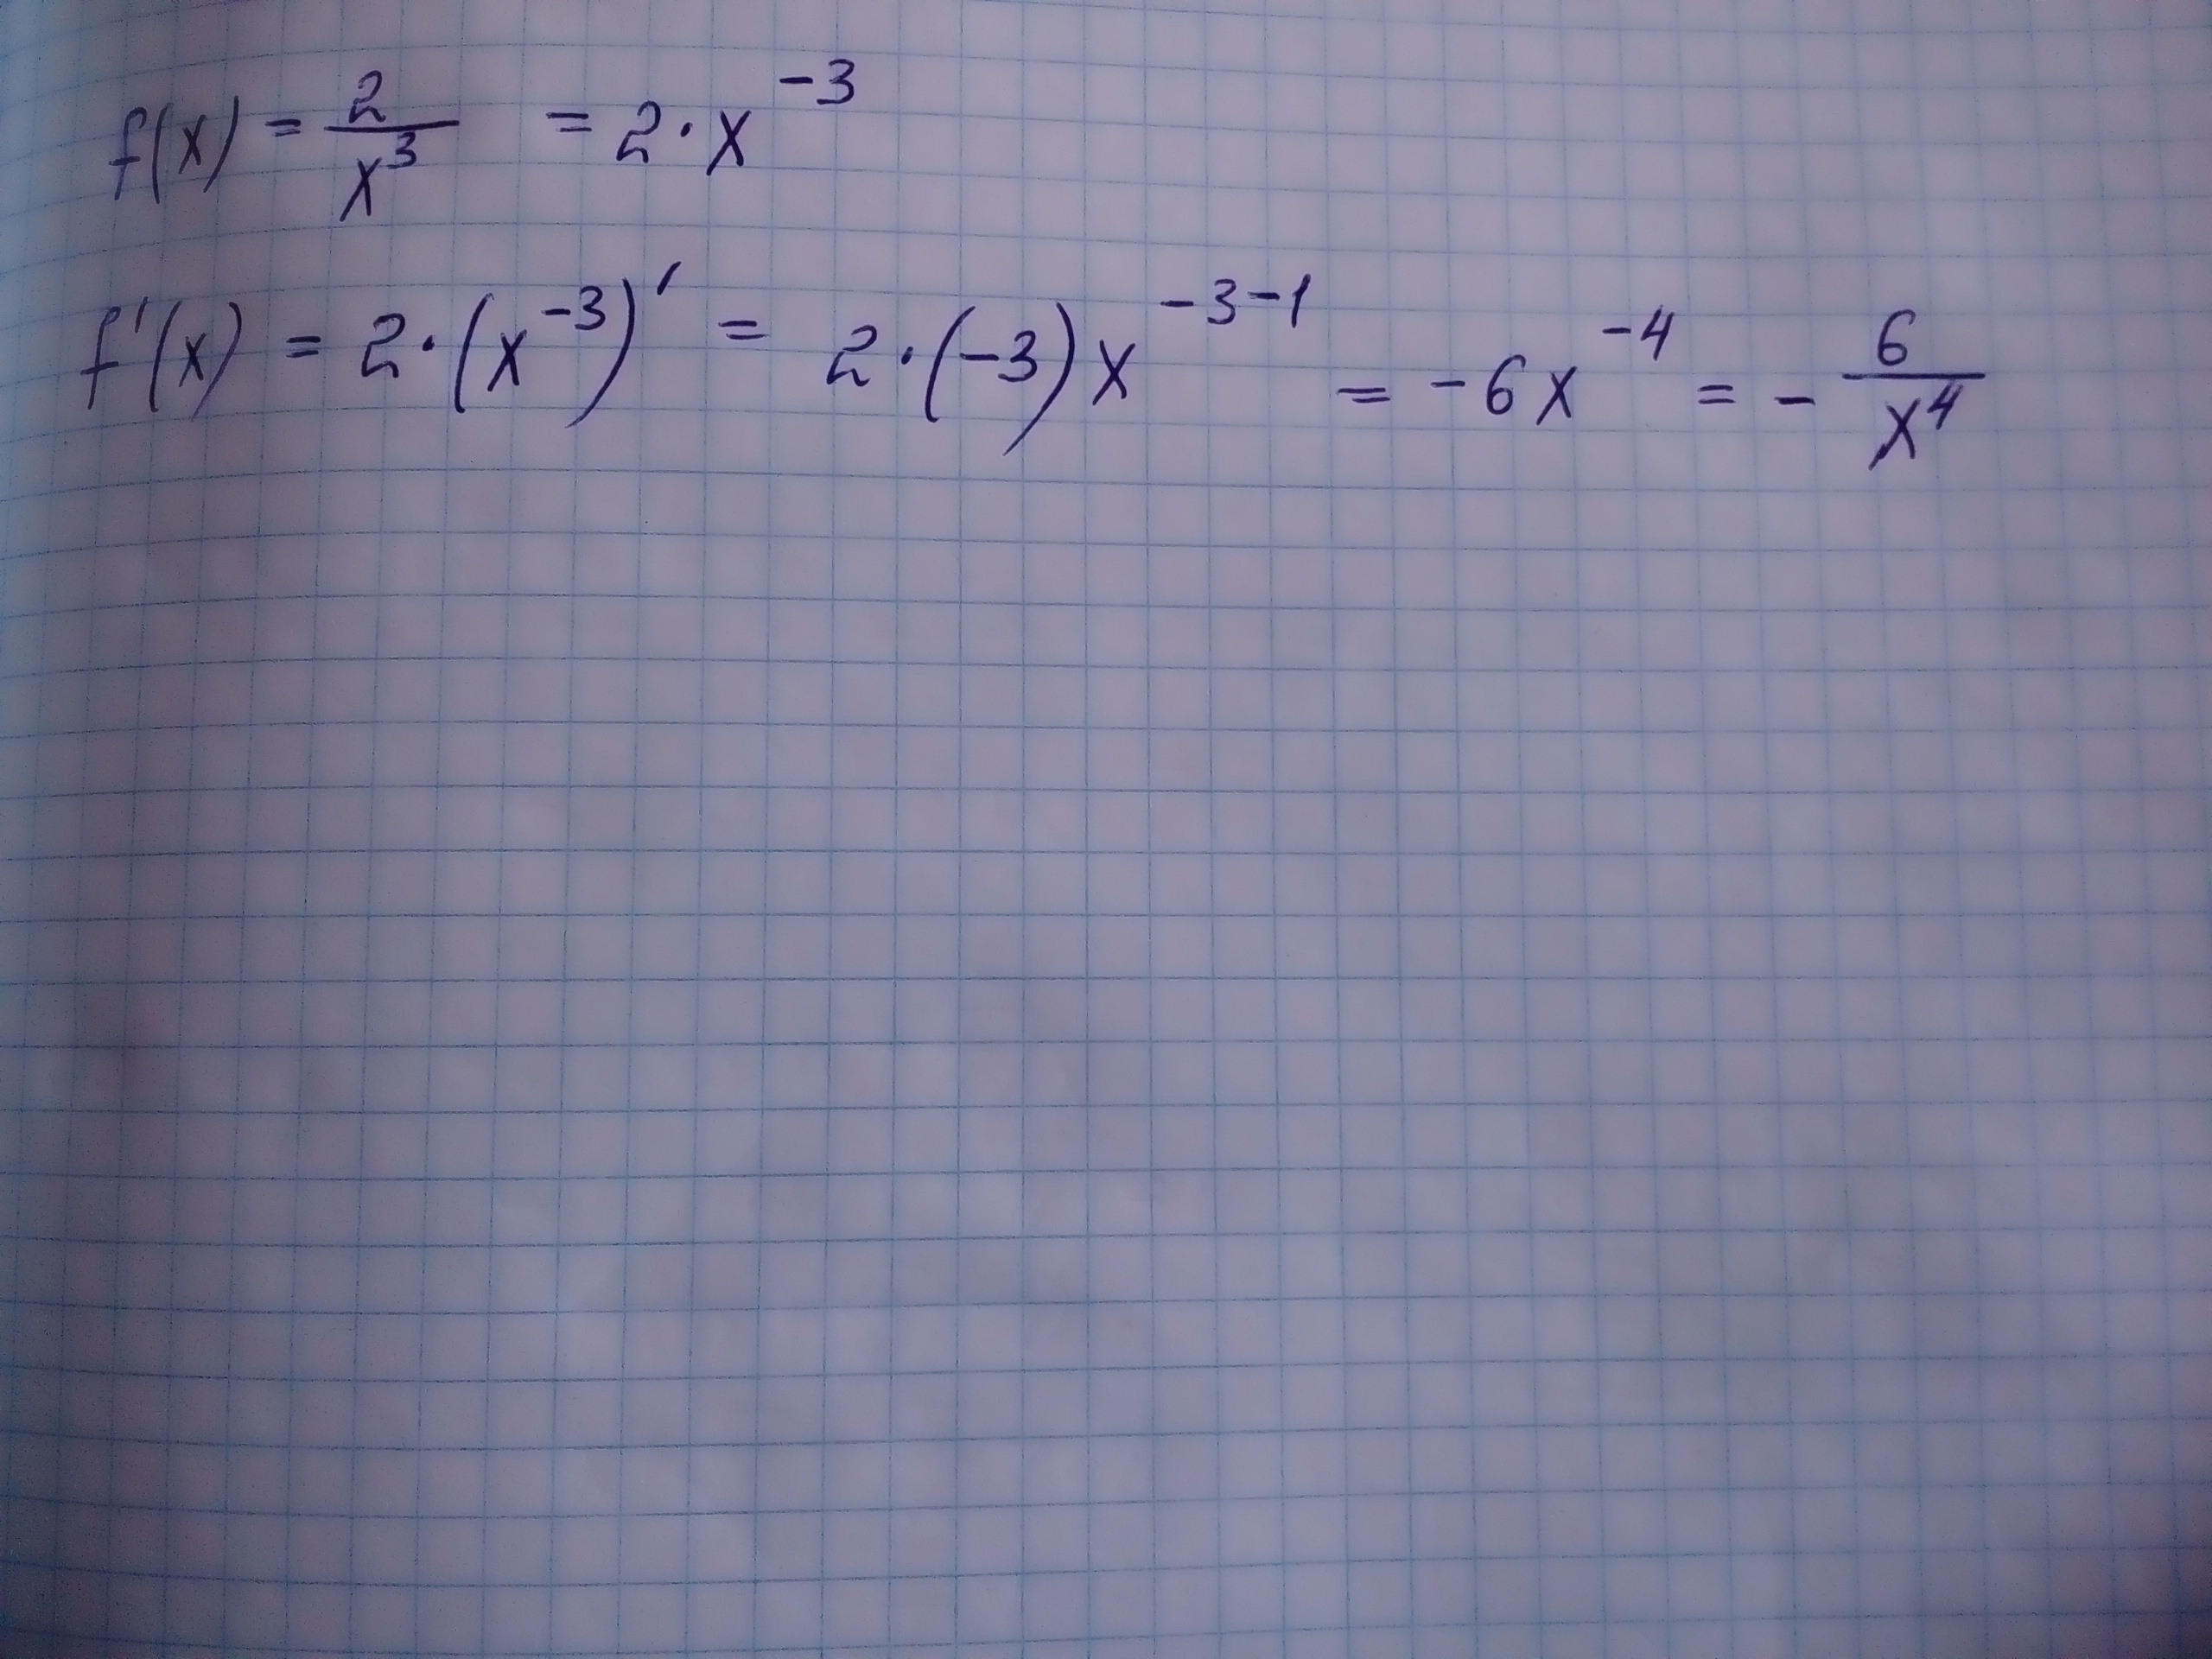 f(x) = 2/x³ = 2·x⁻³
f'(x) = 2·(x⁻³)' = 2·(-3)x⁻³⁻¹ = -6x⁻⁴ = - 6/x⁴